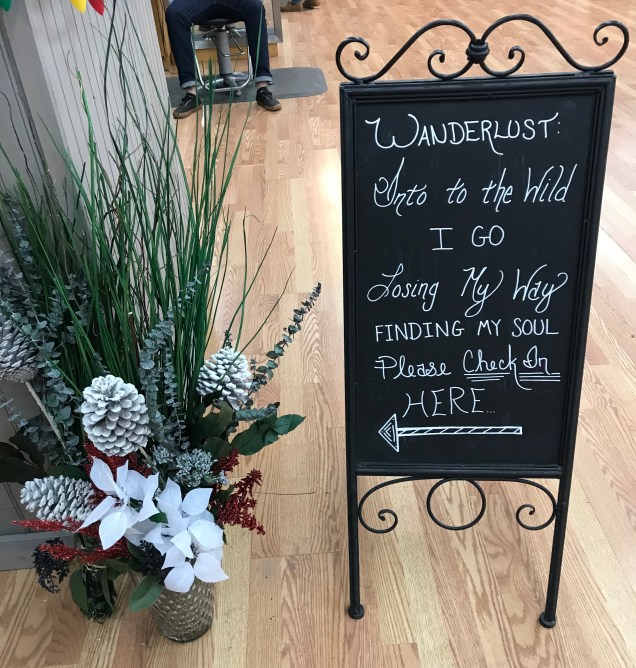 WANDERLUST:
Into to the Wild
I GO
Losing My Way
FINDING MY SOUL
Please Check In
HERE...